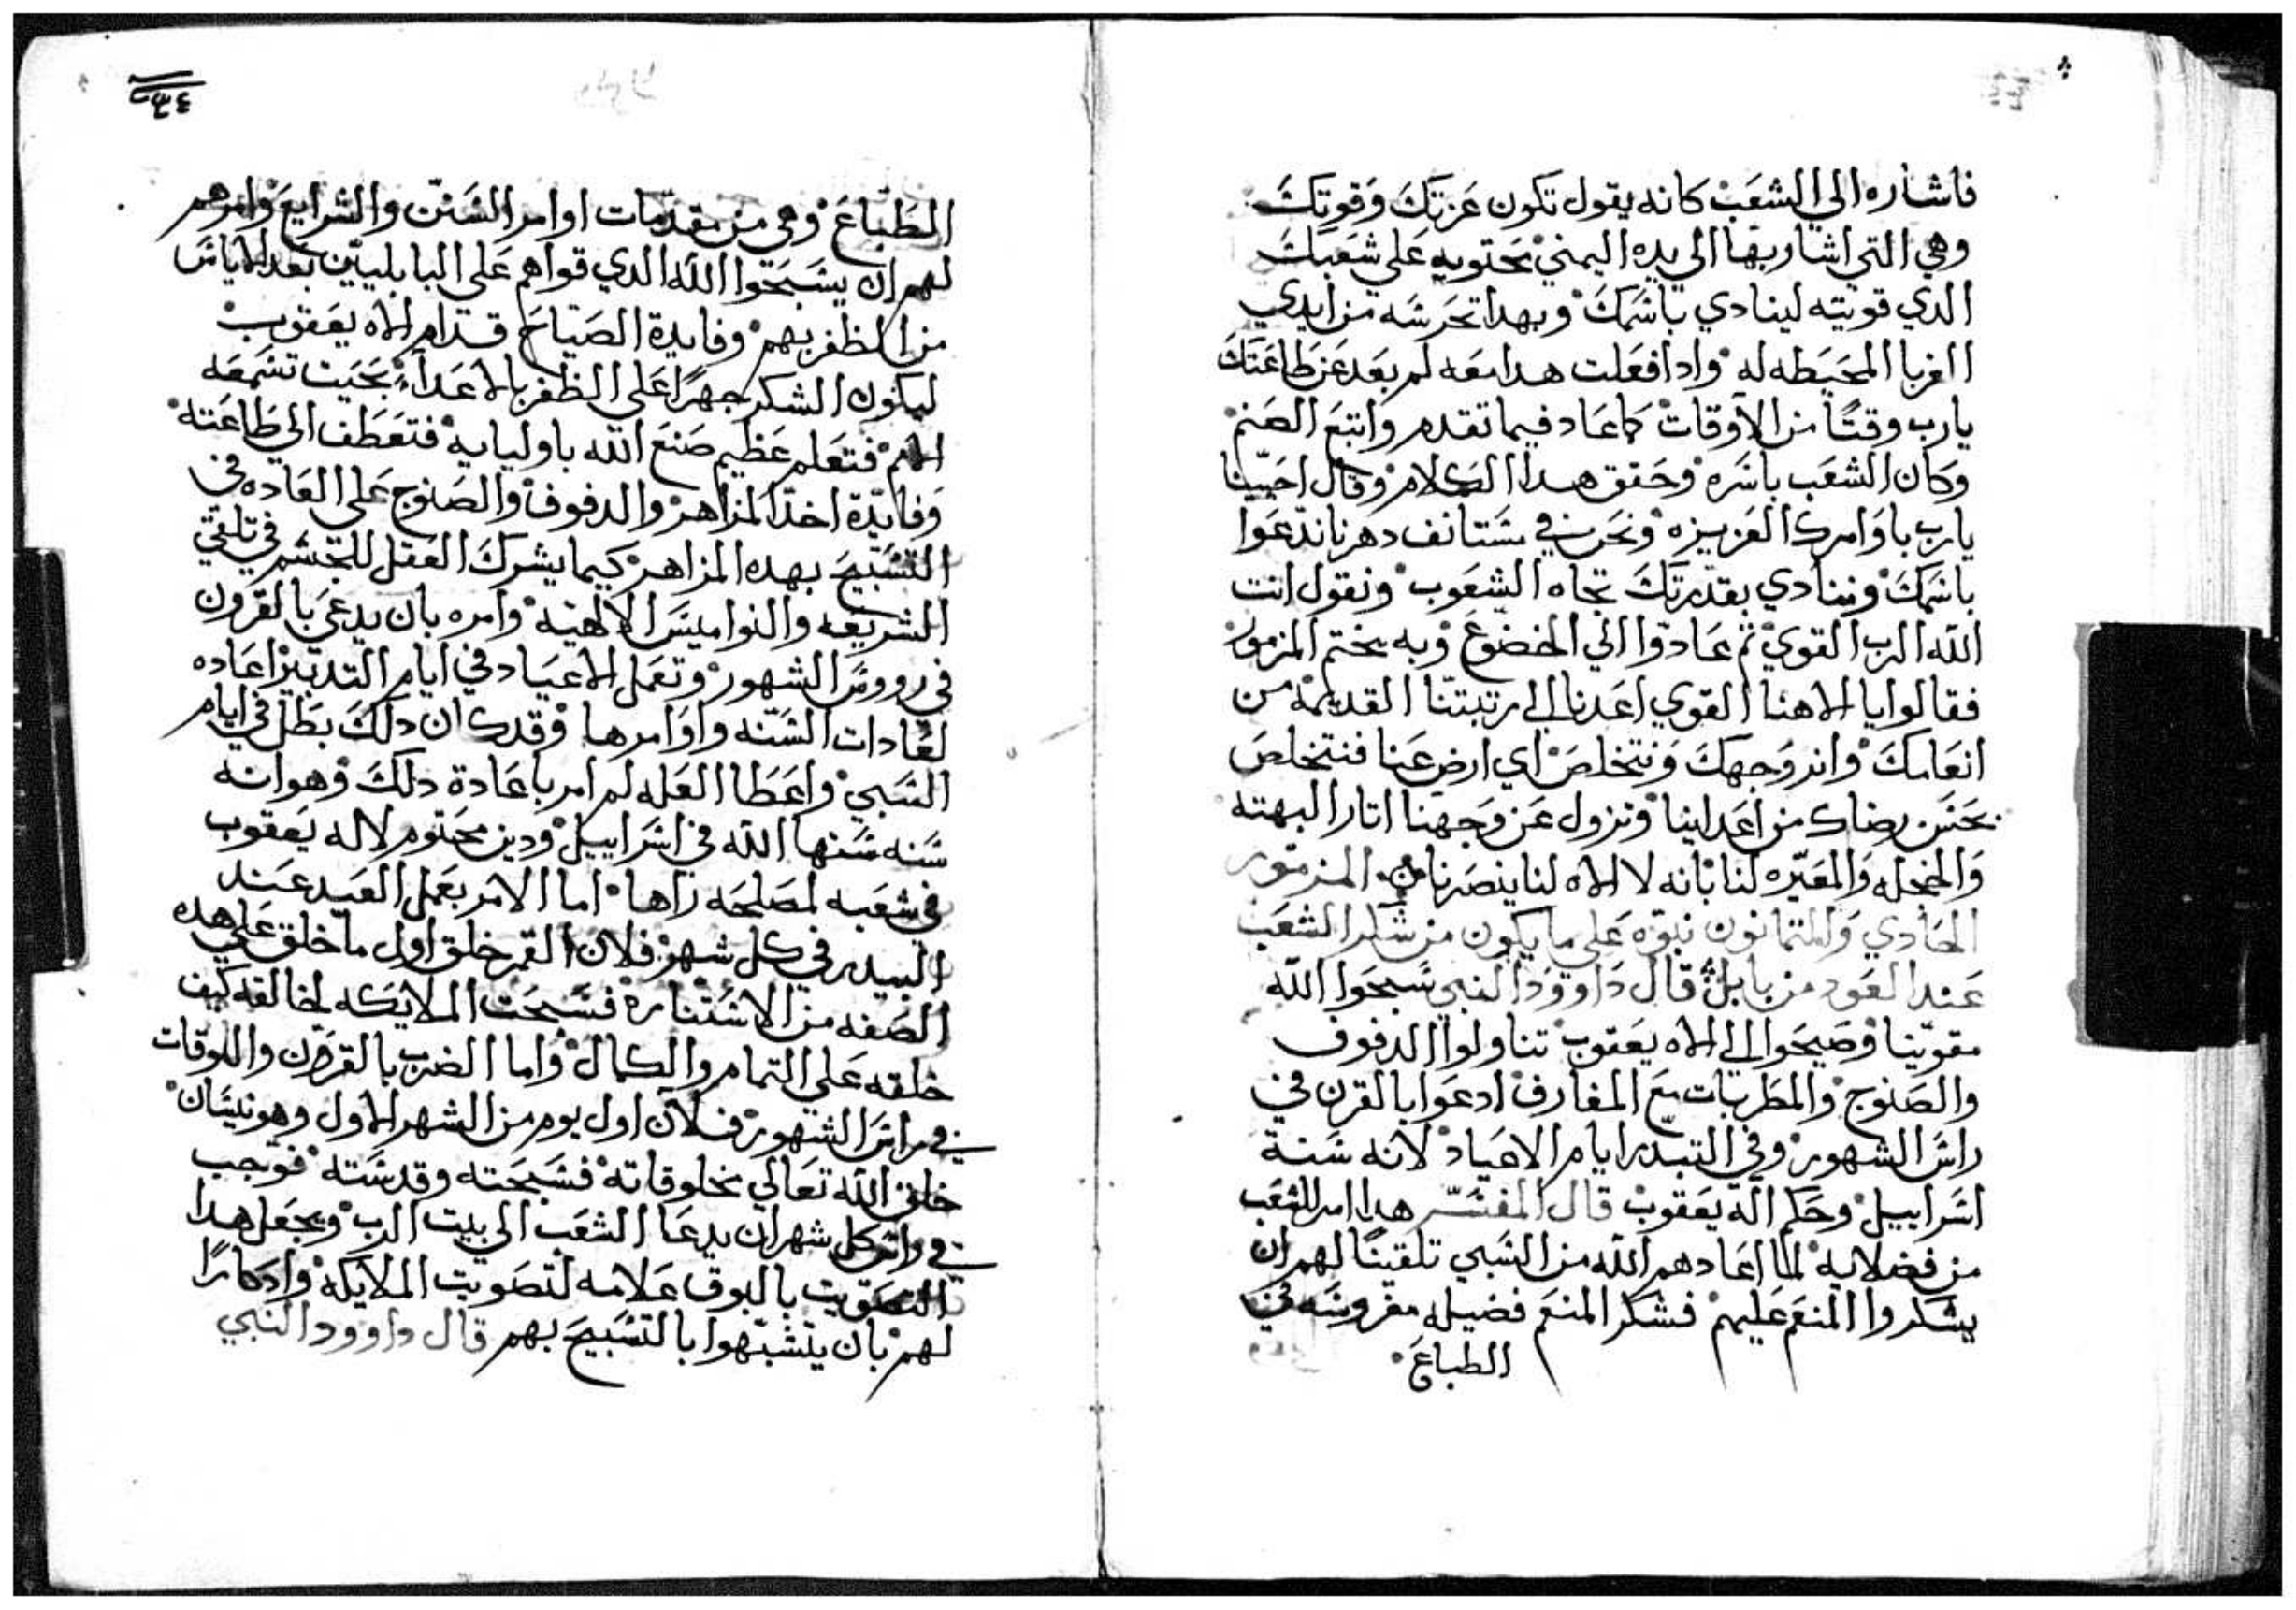 فاشاره الي الشعب كانه يقول تكون عزتك وقوتك
وهي التي اشار بها الي يده اليمني محتويه علي شعبك
الدي قويته لينادي باسمك وبهدا تحرسه من ايدي
الغربا المحيطه له وادا فعلت هدا معه لم بعد عن طاعتك
يارب وقتًا من الاوقات كما عاد فيما تقدم واتبع الصنم
وكان الشعب باسره وحقق هدا الكلام وقال احيينا
يارب باوامرك العزيزه ونحن في مستانف دهرنا ندعوا
باسمك وننادي بقدرتك تجاه الشعوب ونقول انت
الله الرب القوي ثم عادوا الي الخضوع وبه يختم المزمور
فقالوا يا الاهنا القوي اعدنا الي رتبتنا القديمه من
انعامك وانر وجهك ونتخلص اي ارض عنا فنتخلص
بحسن رضاك من اعداينا ونزول عن وجهنا اتار البهته
والخجله والمعيره لنا بانه لا الاه لنا ينصرنا المزمور
الحادي والتمانون نبوه علي ما يكون من شكر الشعب
عند العود من بابل قال داوود النبي سبحوا الله
مقوينا وصيحوا الي الاه يعقوب تناولوا الدفوف
والصنوج والمطربات مع المعازف ادعوا بالقرن في
راس الشهور وفي التبدر ايام الاعياد لانه سنة
اسراييل وحكم اله يعقوب قال المفسر هدا امر للشعب
من فضلايه لما اعادهم الله من السبي تلقينًا لهم ان
يشكروا المنعم عليهم فشكر المنعم فضيله مغروسه في
الطباع
٢٣٤
الطباع وهي من مقدمات اوامر السنن والشرايع وامرهم
لهم ان يسبحوا الله الدي قواهم علي البابليين بعد الاياس
من الظفر بهم وفايدة الصياح قدام الاه يعقوب
ليكون الشكر جهرًا علي الظفر بالاعداء بحيت تسمعه
الامم فتعلم عظيم صنع الله باوليايه فتعطف الي طاعته
وفايدة اخد المزاهر والدفوف والصنوج علي العاده في
التسبيح بهده المزاهر كيما يشرك العقل للجسم في تلقي
الشريعه والنواميس الالهيه وامره بان يدعي بالقرون
في رووس الشهور وتعمل الاعياد في ايام التدبير اعاده
لعادات السنه واوامرها وقد كان دلك بطل في ايام
السبي واعطا العله لم امر باعادة دلك وهو انه
سنه سنها الله في اسراييل ودين محتوم لاله يعقوب
في شعبه لمصلحه راها اما الامر بعمل العيد عند
البيدر في كل شهر فلان القمر خلق اول ما خلق علي هده
الصفه من الاستناره فسبحت الملايكه لخالقه كيف
خلقه علي التمام والكمال واما الضرب بالقرن والبوقات
في راس الشهور فلان اول يوم من الشهر الاول وهو نيسان
خلق الله تعالي مخلوقاته فسبحته وقدسته فوجب
في راس كل شهر ان يدعا الشعب الي بيت الرب ويجعل هدا
التصويت بالبوق علامه لتصويت الملايكه وادكارًا
لهم بان يتشبهوا بالتسبيح بهم قال داوود النبي